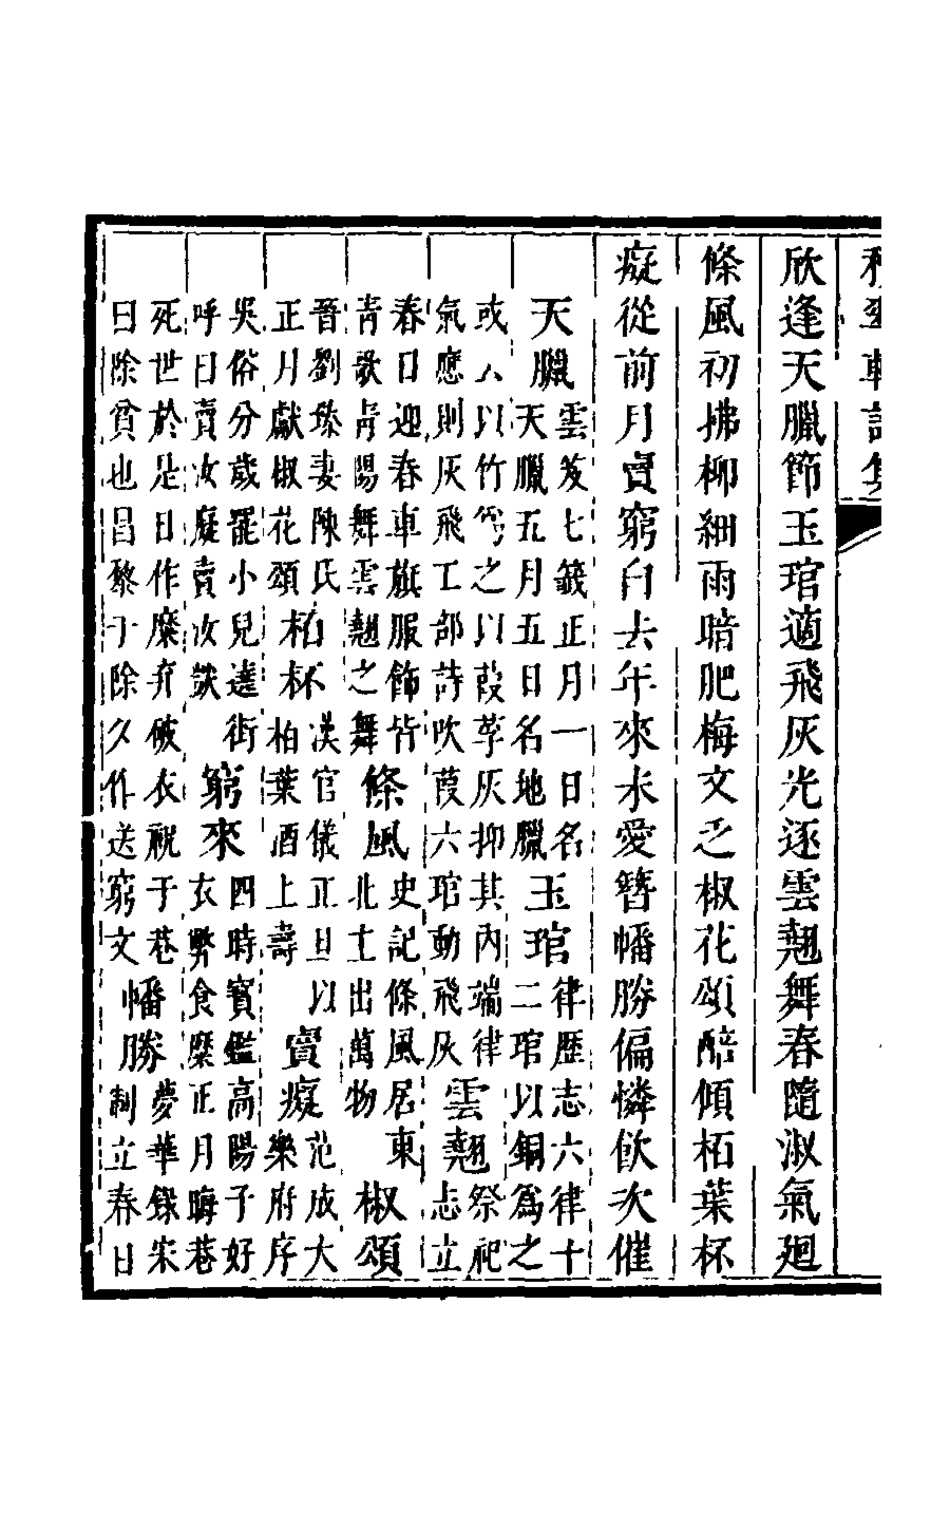 欣逢天臘節玉琯適飛灰光逐雲翹舞春隨淑氣廻
條風初拂柳細雨暗肥梅文乏椒花頌醅傾柏葉杯
癡從前月賣窮自去年來未愛簪幡勝偏憐飲次催
天臘雲笈七籤正月一日名天臘五月五日名地臘玉琯律歷志六律十二琯以銅爲之
或人以竹爲之以葭莩灰抑其內端律氣應則灰飛工部詩吹葭六琯動飛灰雲翹祭祀志立
春日迎春車旗服飾皆靑歌靑陽舞雲翹之舞條風史記條風居東北主出萬物椒頌
晉劉臻妻陳氏正月獻椒花頌柏杯漢官儀正旦以柏葉酒上壽賣癡范成大樂府序
吳俗分歲罷小兒遶街呼曰賣汝癡賣汝獃窮來四時寶鑑高陽子好衣弊食糜正月晦巷
死世於是日作糜弃破衣祝于巷曰除貧也昌黎于除夕作送窮文幡勝夢華錄宋制立春日